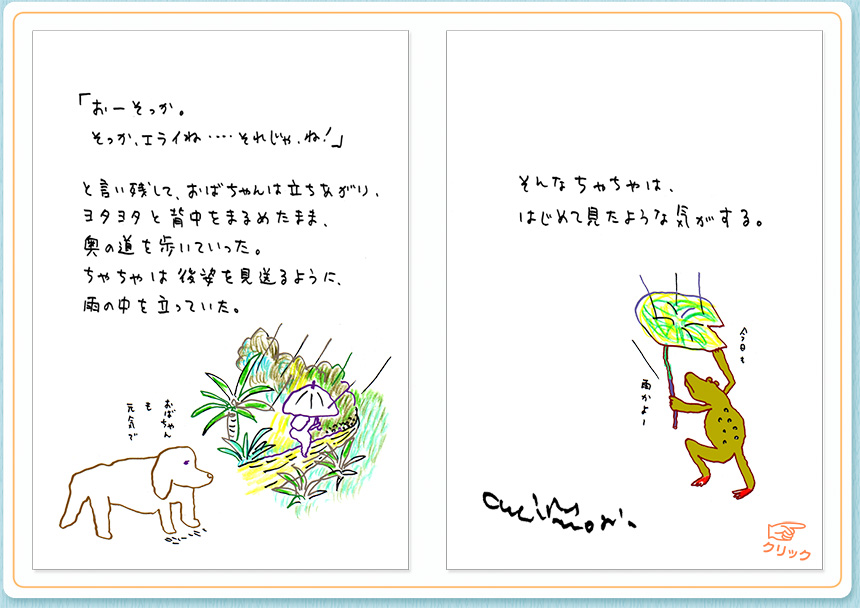 「おーそっか。
そっか、エライね‥‥それじゃ、ね!」
と言い残して、おばちゃんは立ちあがり、
ヨタヨタと背中をまるめたまま、
奥の道を歩いていった。
ちゃちゃは後姿を見送るように、
雨の中を立っていた。
おばちゃん
も
元気で
そんなちゃちゃは、
はじめて見たような気がする。
今日も
雨かよー
クリック